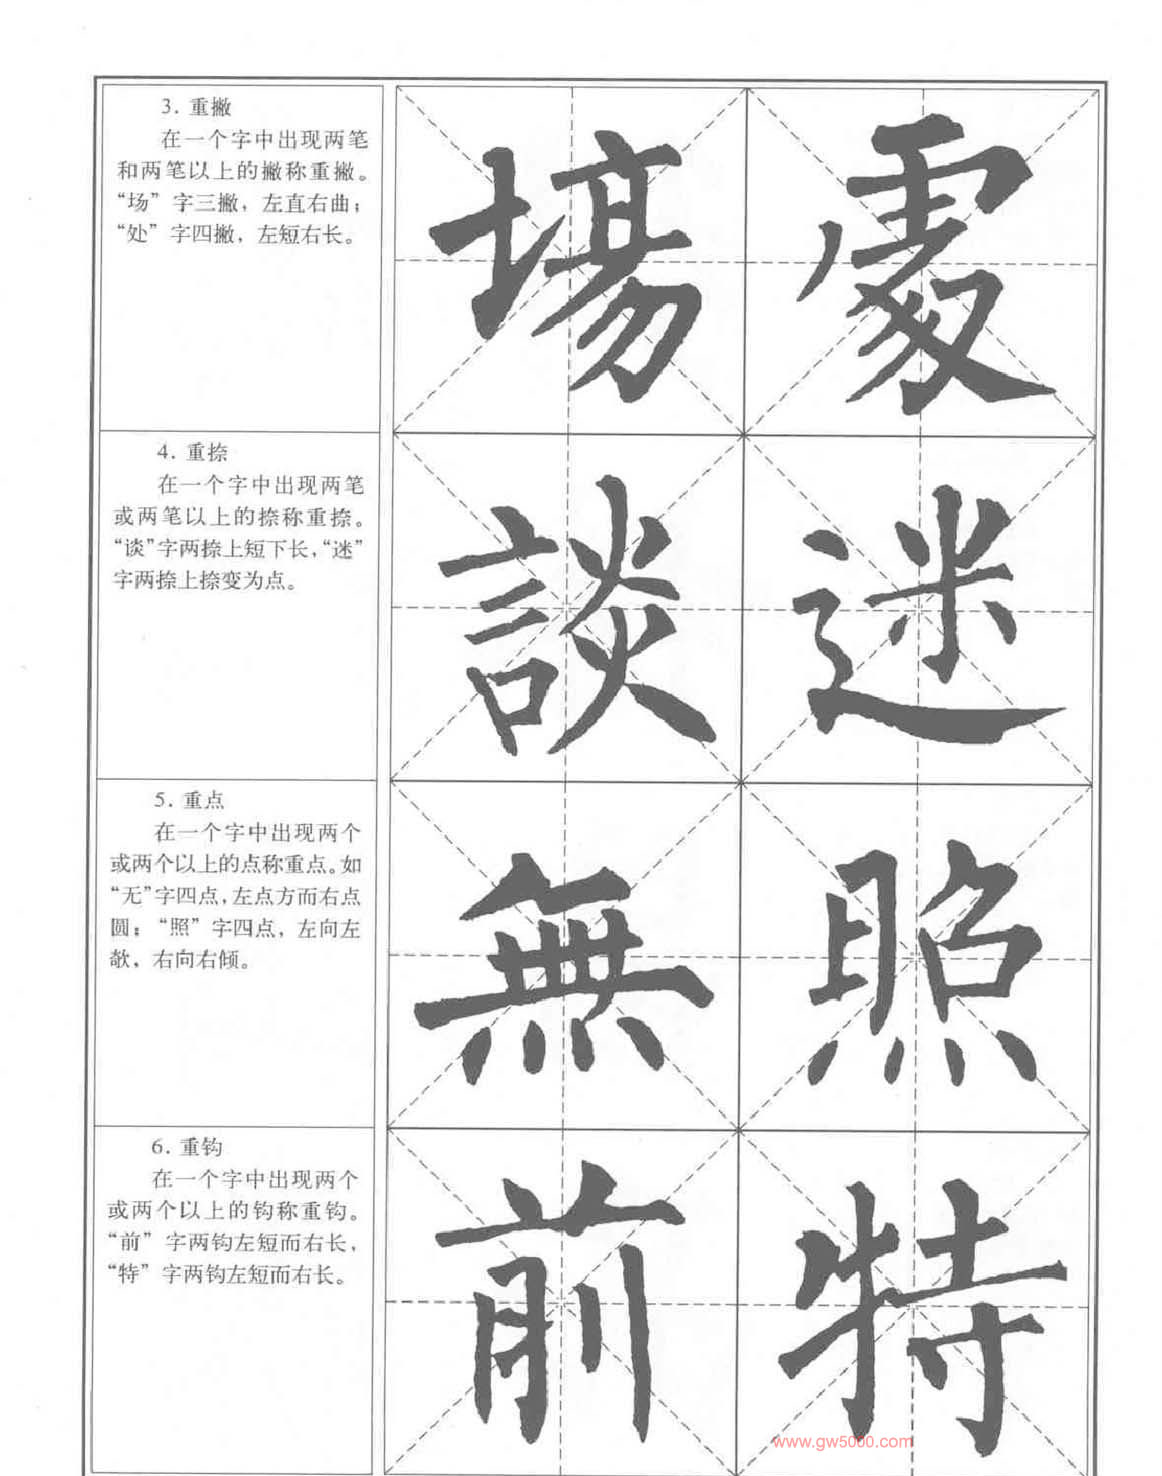 3. 重撇
在一个字中出现两笔
和两笔以上的撇称重撇。
“场”字三撇，左直右曲；
“处”字四撇，左短右长。
場
處
4. 重捺
在一个字中出现两笔
或两笔以上的捺称重捺。
“谈”字两捺上短下长，“迷”
字两捺上捺变为点。
談
迷
5. 重点
在一个字中出现两个
或两个以上的点称重点。如
“无”字四点，左点方而右点
圆；“照”字四点，左向左
欹，右向右倾。
無
照
6. 重钩
在一个字中出现两个
或两个以上的钩称重钩。
“前”字两钩左短而右长，
“特”字两钩左短而右长。
前
特
www.gw5000.com